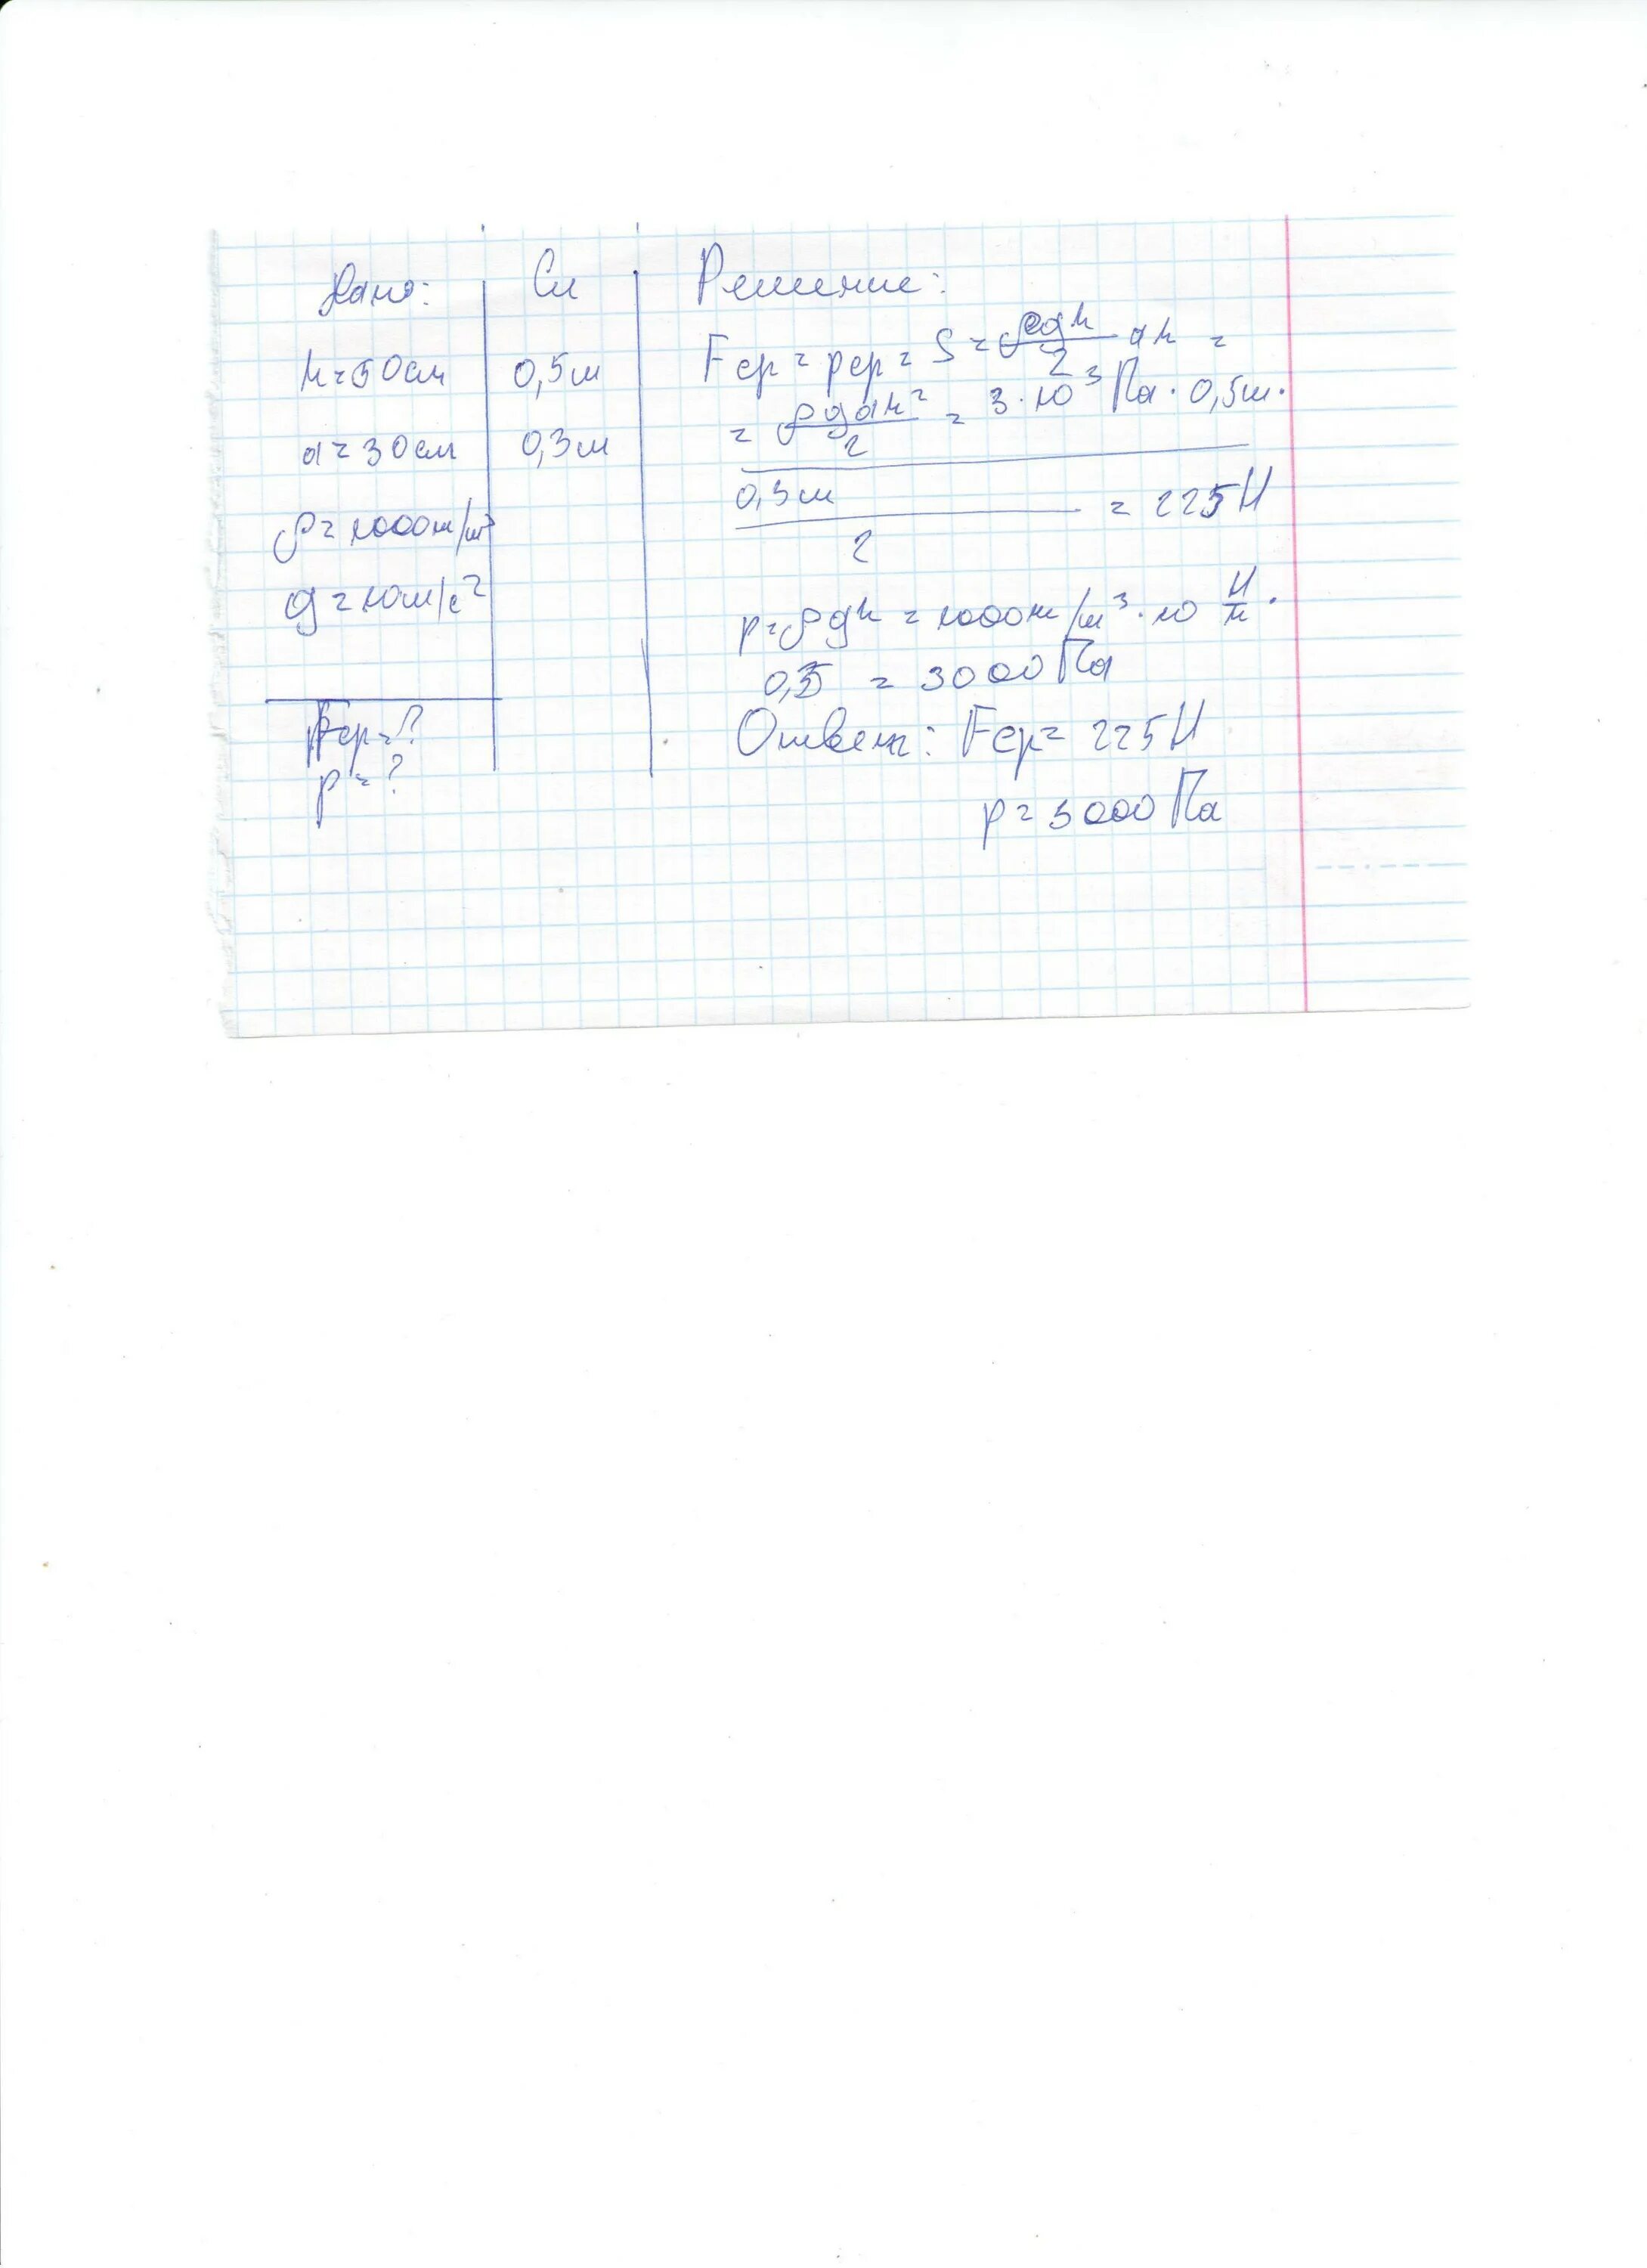 Дано:
h = 50см
a = 30см
ρ = 1000кг/м³
g = 10м/с²
Fср = ?
p = ?
Си
0,5м
0,3м
Решение:
Fср = pср = S = ρgh/2 ah =
= ρgah²/2 = 3·10³ Па · 0,5м·
0,3м/2 = 225Н
p = ρgh = 1000кг/м³ · 10 Н/кг ·
0,3 = 3000Па
Ответ: Fср = 225Н
p = 3000Па